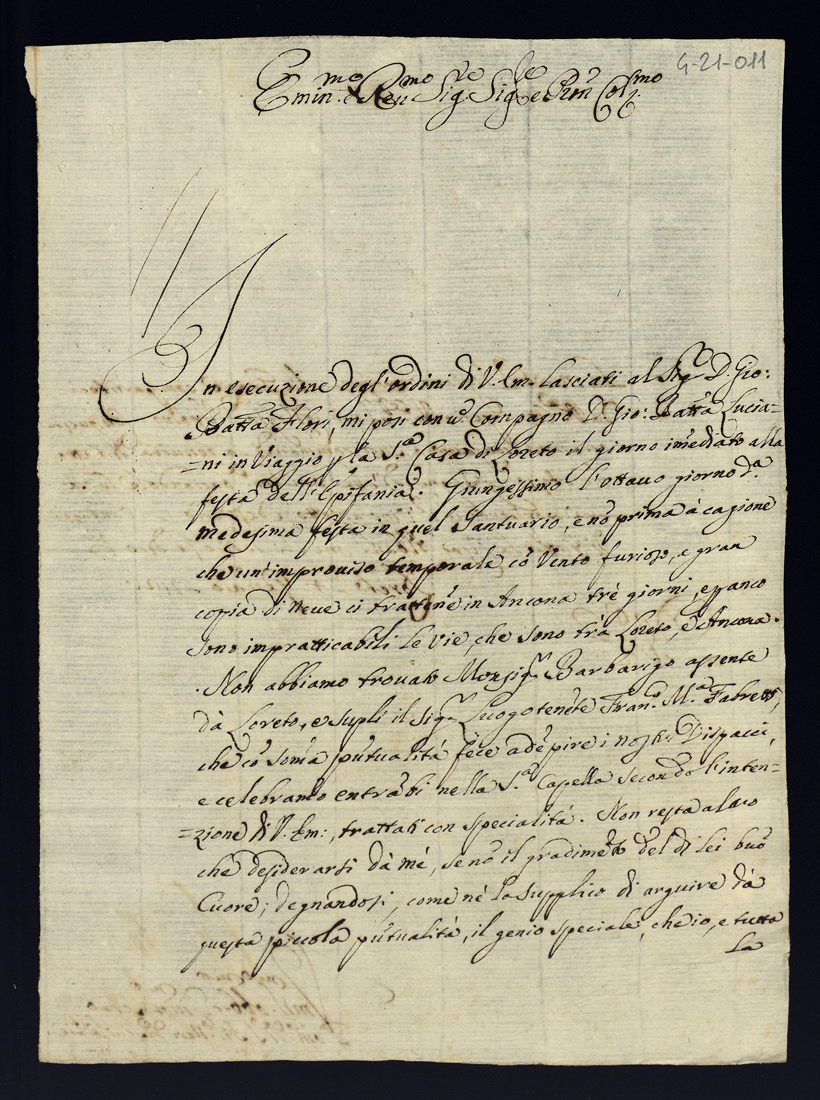 G-21-011
Emin.mo e Ren.mo Sig.re Sig.re e Pron Col.mo
In esecuzione degl'ordini di V. Em. lasciati al Sig.r D. Gio:
Batta Flori, mi posi con u' Compagno D. Gio: Batta Lucia=
=ni in Viaggio p la S.a Casa di Loreto il giorno imediato alla
festa dell'Epifania. Giungessimo l'ottavo giorno d.a
medesima festa in quel Santuario, e nō prima à cagione
che un'improviso temporale cō Vento furioso, e gran
copia di Neve ci trattene in Ancona trè giorni, e panco
sono impratticabili le vie, che sono trà Loreto, et Ancona.
Non abbiamo trovato Monsig.r Barbarigo assente
dà Loreto, e supli il Sig.r Luogotenēte Fran.o M.a Fabretti,
che cō soma pūtualità fece adēpire i nostri Dispacci,
e celebramo entrābi nella S.a Capella secondo l'inten=
=zione di V. Em:, trattati con specialità. Non resta altro
che desiderarsi dà mè, se nō il gradimēto del di lei buō
Cuore; degnandosi, come nè lo supplico di arguire dà
questa piccola pūtualità, il genio speciale, che io, e tutta
la